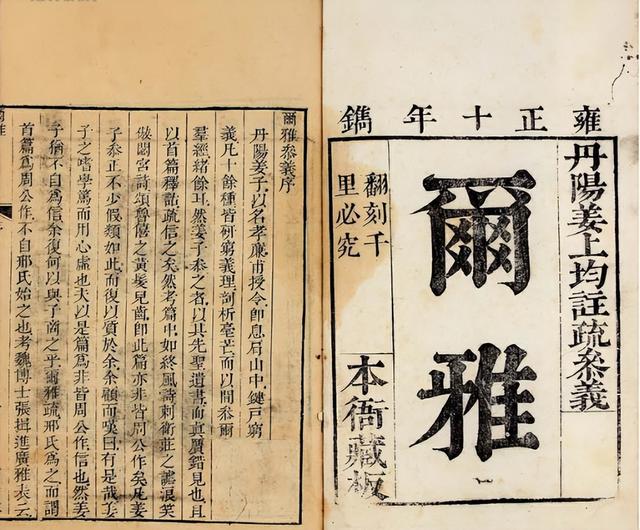 雍正十年鐫
丹陽姜上均註疏叅義
爾雅
翻刻千
里必究
本衙藏板
爾雅叅義序
丹陽姜子以名孝廉市授令即息肩山中鍵戶窮
義凡十餘種皆研窮義理剖析毫芒而以間叅爾
羣經緒餘耳然姜子叅之者以其先聖遺書而真贗錯見也且
以首篇釋詁疏信之矣然考篇中如終風詩刺衛莊之謔浪笑
傲閟宮詩頌魯僖之黃髮兒齒即此篇亦非皆周公作矣凡姜
子叅正不少假類如此而復以質於余余顧而嘆曰有是哉姜
子之嗜學篤而用心虛也夫以是篇爲非皆周公作信也然姜
子猶不自爲信余復何以與子商之乎爾雅疏邢氏爲之而謂
首篇爲周公作不自邢氏始之也考魏博士張揖進廣雅表云